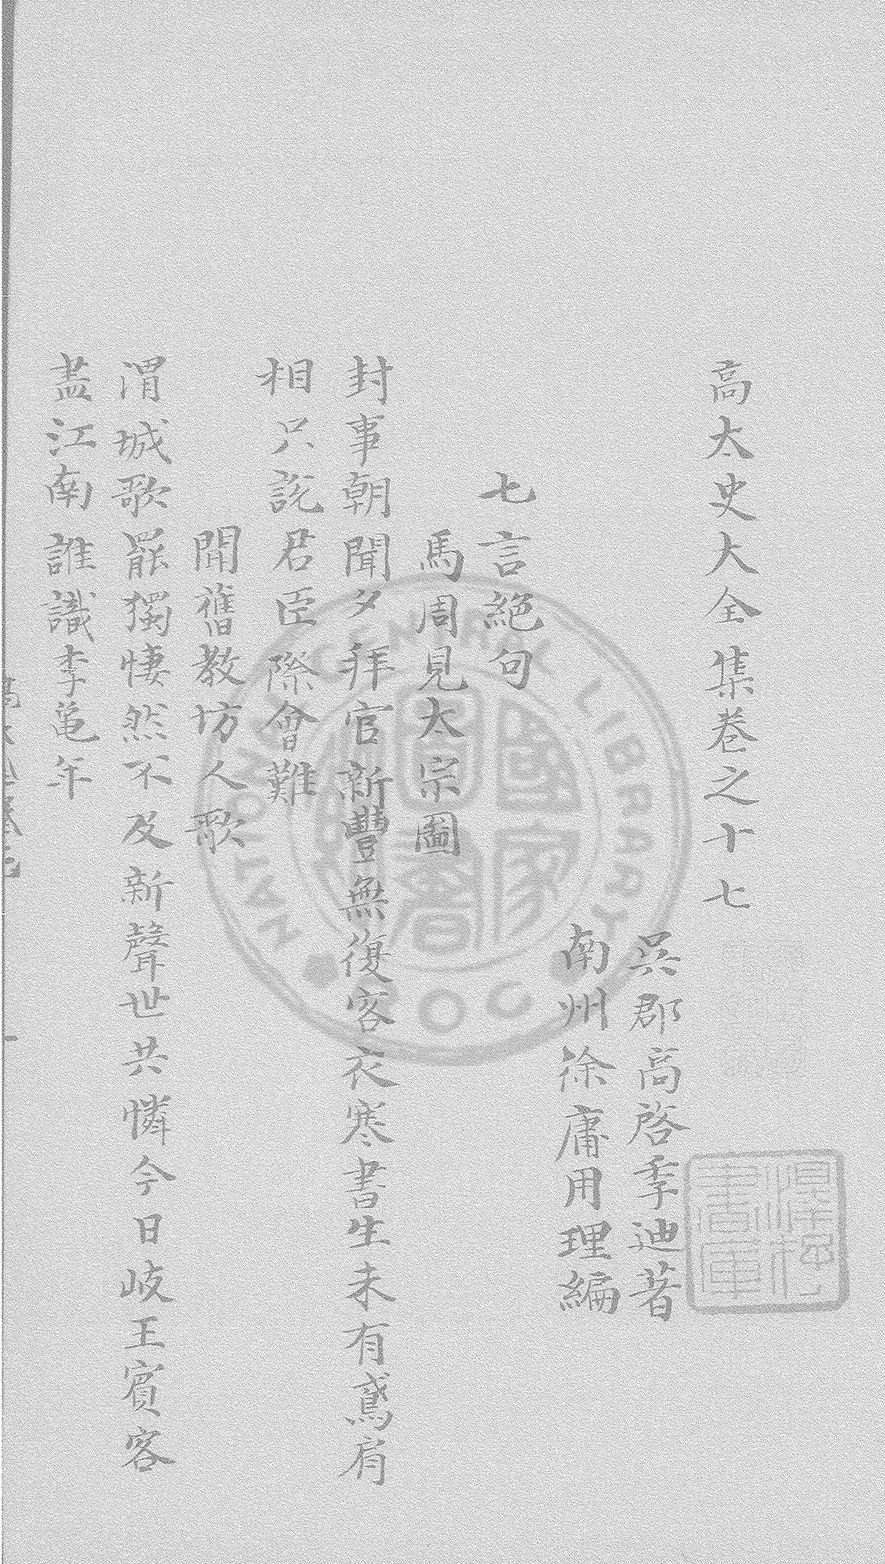 高太史大全集卷之十七
吳郡高啓季迪著
南州徐庸用理編
七言絕句
馬周見太宗圖
封事朝聞夕拜官新豐無復客衣寒書生未有鳶肩
相只說君臣際會難
聞舊教坊人歌
渭城歌罷獨悽然不及新聲世共憐今日岐王賓客
盡江南誰識李亀年
NATIONAL CENTRAL LIBRARY
ROC
國家圖書館